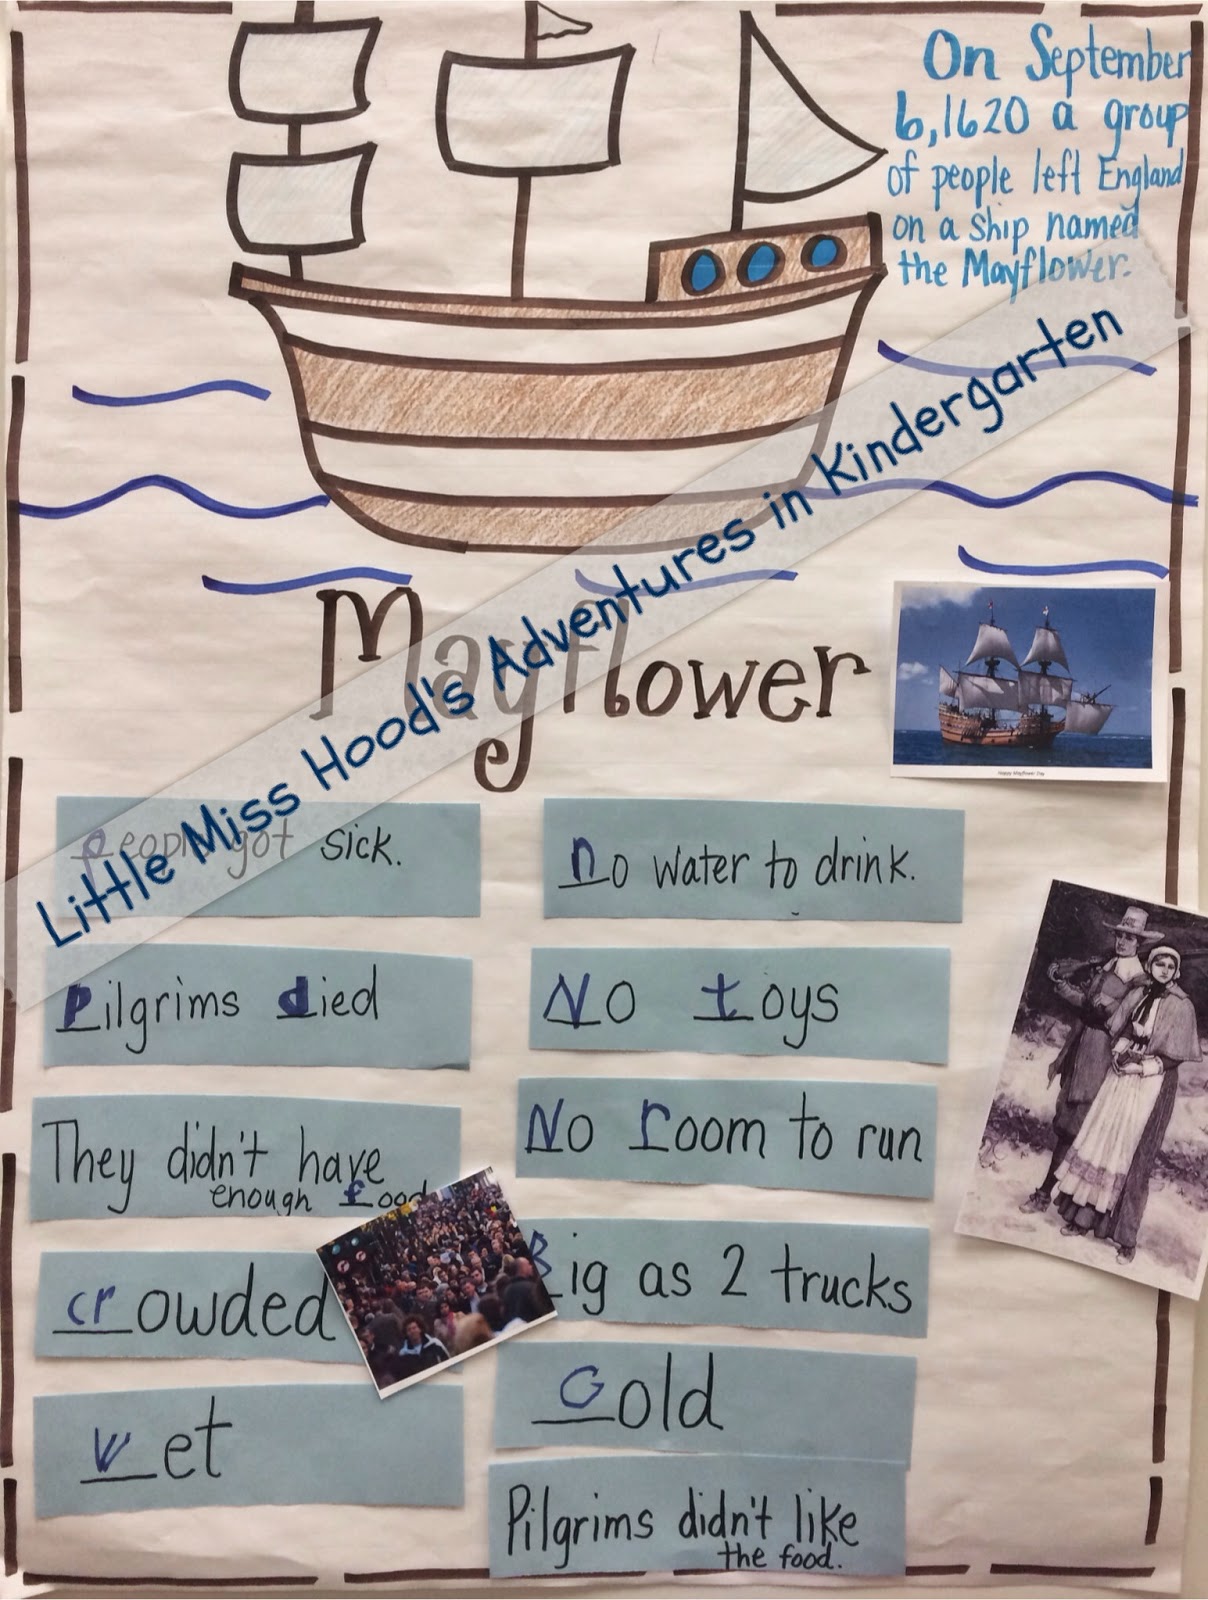 On September
6, 1620 a group
of people left England
on a ship named
the Mayflower.
Little Miss Hood's Adventures in Kindergarten
Mayflower
Happy Mayflower Day
People got sick.
Pilgrims died
They didn't have
enough food
crowded
wet
no water to drink.
No toys
No room to run
Big as 2 trucks
Cold
Pilgrims didn't like
the food.